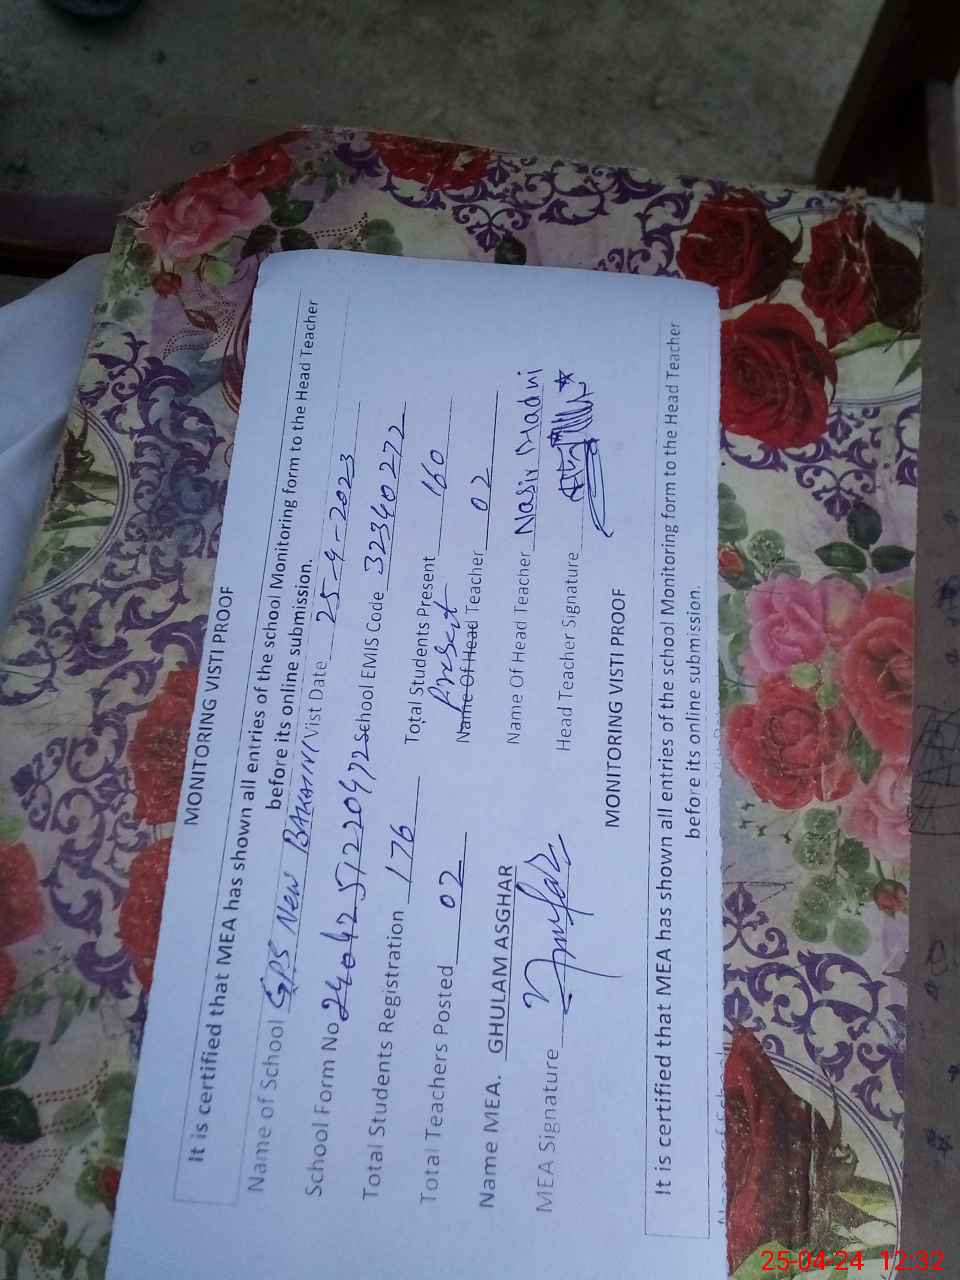 MONITORING VISTI PROOF
It is certified that MEA has shown all entries of the school Monitoring form to the Head Teacher
before its online submission.
Name of School GPS New BAKAINI Vist Date 25-4-2023
School Form No School EMIS Code 32340272
Total Students Registration 176 Total Students Present 160
Total Teachers Posted 02 Name Of Head Present Teacher 02
Name MEA. GHULAM ASGHAR Name Of Head Teacher Nasir Madni
MEA Signature Head Teacher Signature
MONITORING VISTI PROOF
It is certified that MEA has shown all entries of the school Monitoring form to the Head Teacher
before its online submission.
25-04-24 12:32